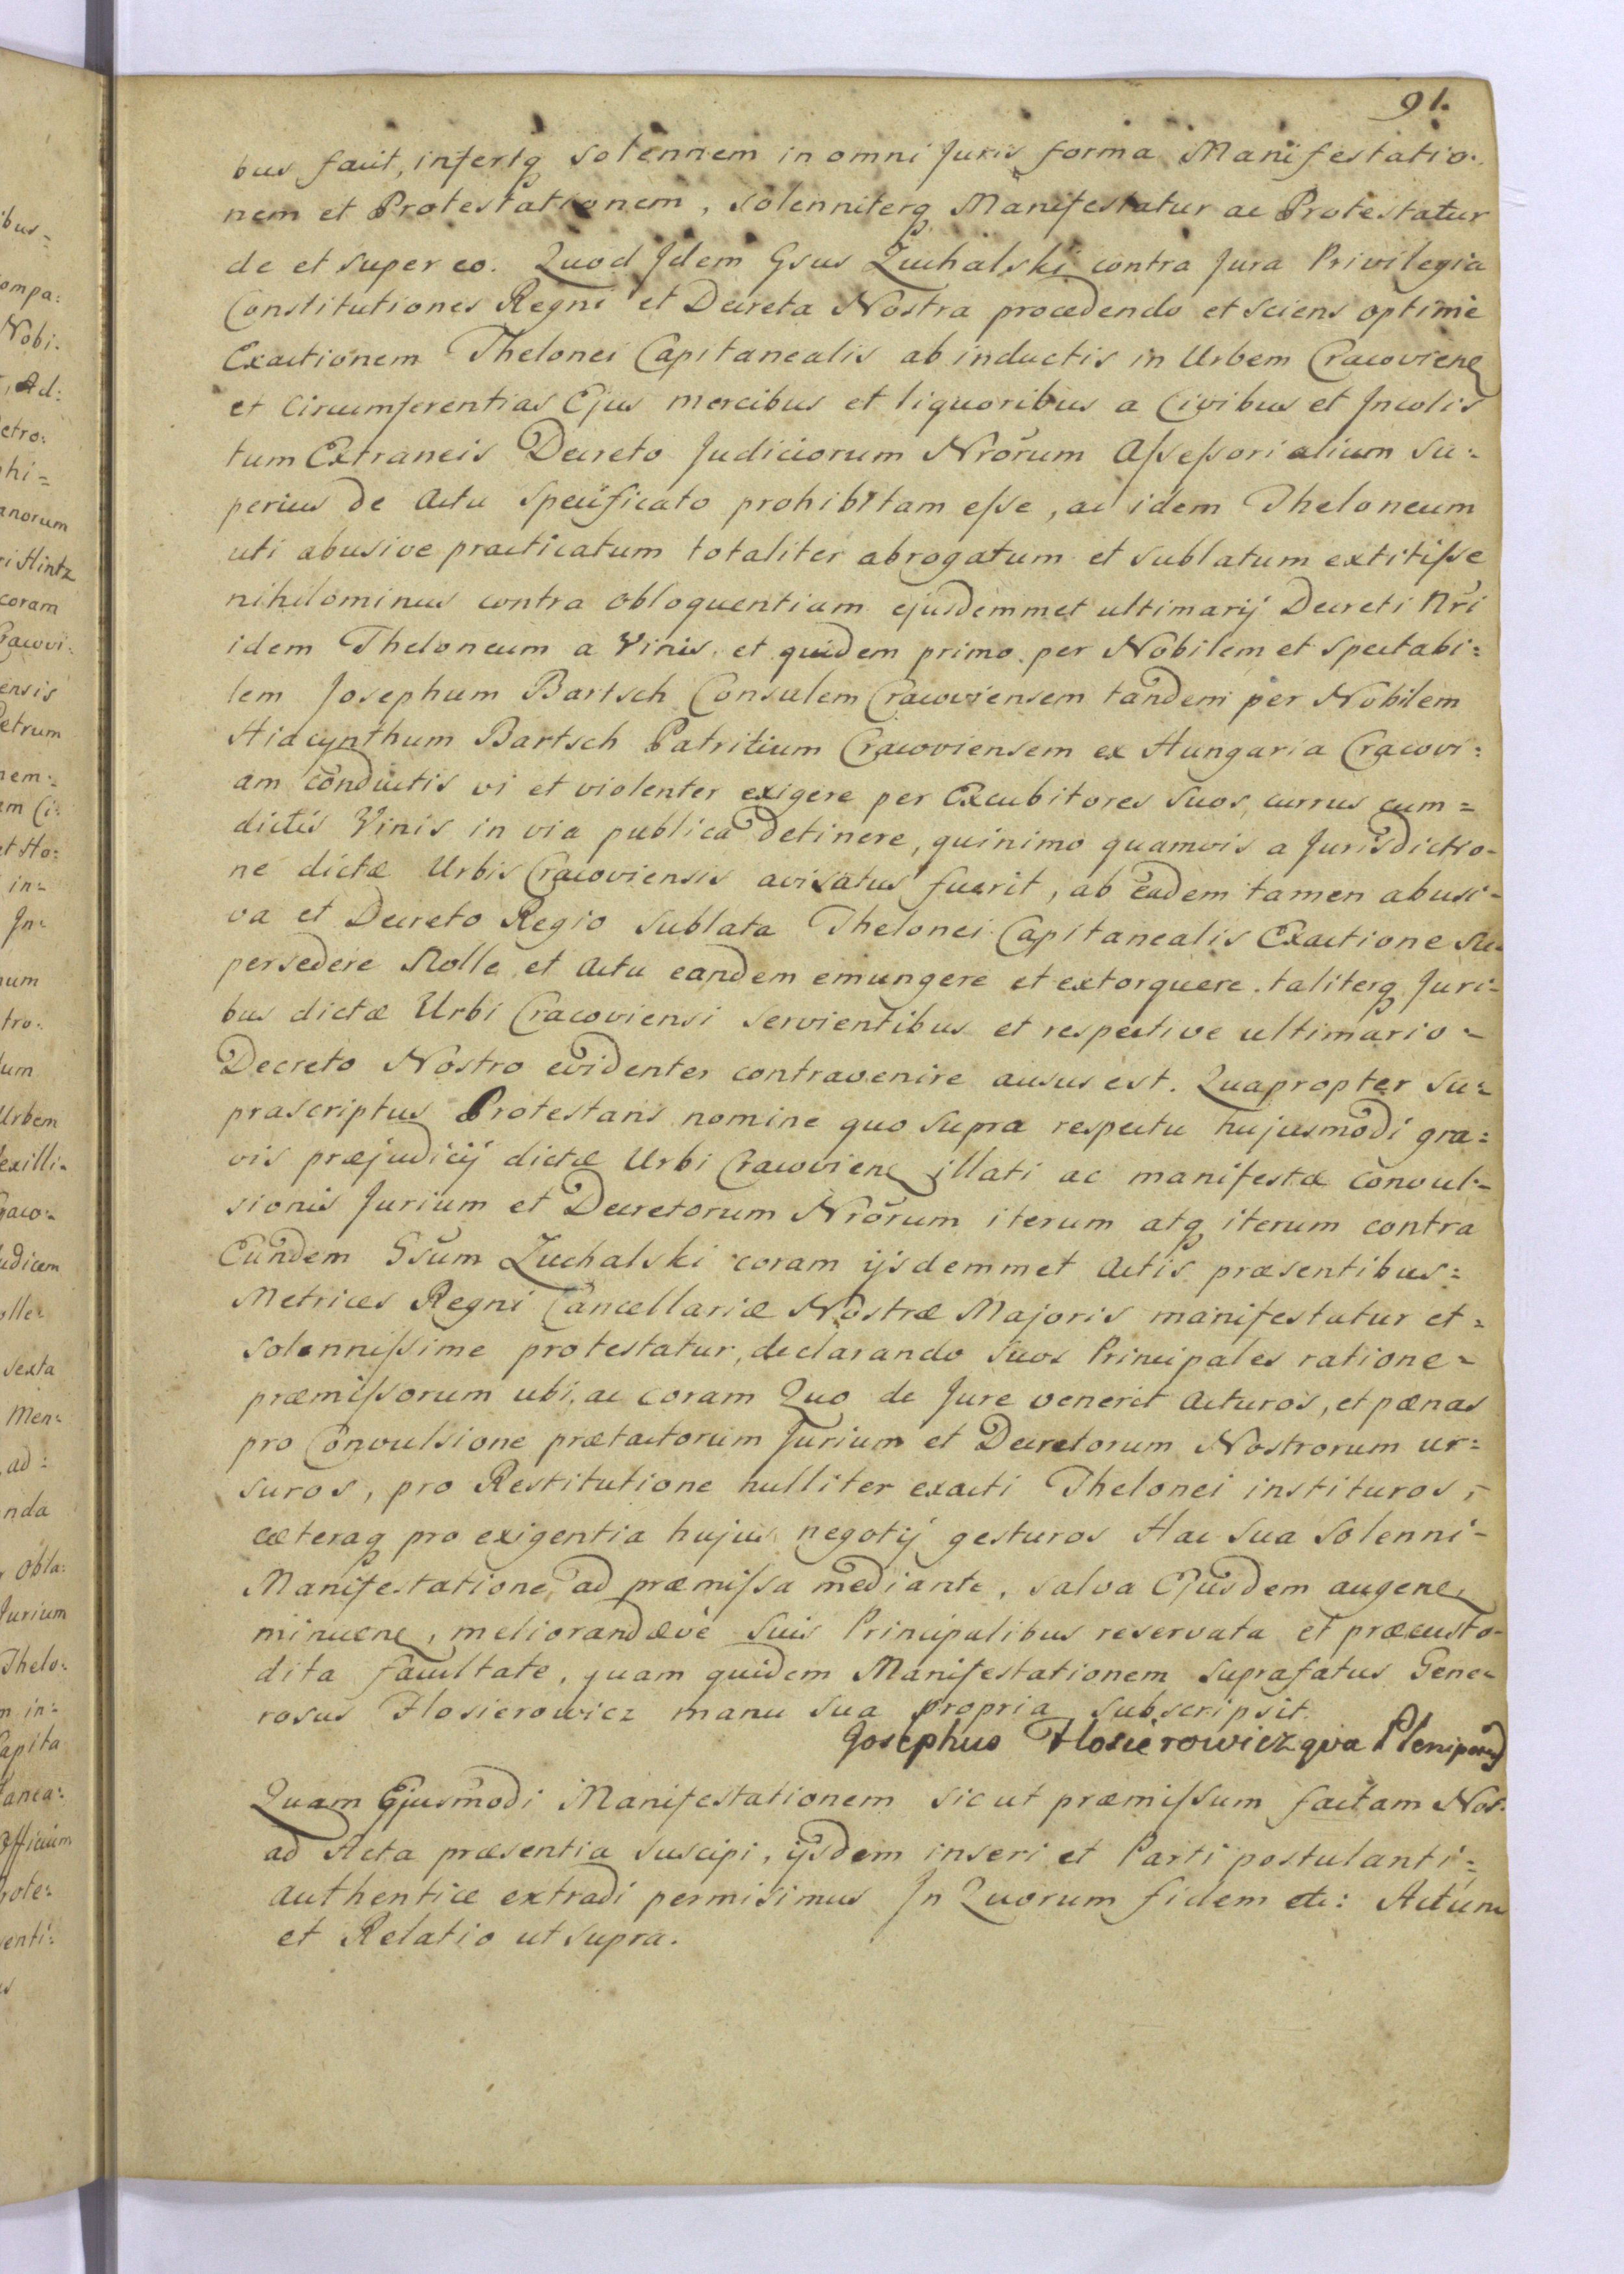 91.
bus facit, infertq solennem in omni Juris forma Manifestatio-
nem et Protestationem, solenniterq Manifestatur ac Protestatur
de et super eo. Quod Idem Gsus Zuchalski contra Jura Privilegia
Constitutiones Regni et Decreta Nostra procedendo et sciens optime
Exactionem Thelonei Capitanealis ab inductis in Urbem Cracovienę
et Circumferentias Ejus mercibus et liquoribus a Civibus et Incolis
tum Extraneis Decreto Judiciorum Nrorum Aſseſsorialium su=
perius de Actu specificato prohibitam eſse, ac idem Theloneum
uti abusive practicatum totaliter abrogatum et sublatum extitiſse
nihilominus contra obloquentiam ejusdemmet ultimarij Decreti Nri
idem Theloneum a Vinis, et quidem primo per Nobilem et Spectabi=
lem Josephum Bartsch Consulem Cracoviensem tandem per Nobilem
Hiacynthum Bartsch Patritium Cracoviensem ex Hungaria Cracovi=
am conductis vi et violenter exigere per Excubitores suos, currus cum=
dictis Vinis in via publica detinere, quinimo quamvis a Jurisdictio-
ne dictæ Urbis Cracoviensis avisatus fuerit, ab eadem tamen abusi-
va et Decreto Regio sublata Thelonei Capitanealis Exactione su=
persedere Nolle, et Actu eandem emungere et extorquere. taliterq Juri=
bus dictæ Urbi Cracoviensi servientibus et respective ultimario =
Decreto Nostro evidenter contravenire ausus est. Quapropter su=
prascriptus Protestans nomine quo supra respectu hujusmodi gra=
vis præjudicij dictæ Urbi Cracovienę illati ac manifestæ convul=
sionis Jurium et Decretorum Nrorum iterum atq iterum contra
Eundem Gsum Zuchalski coram ijsdemmet Actis præsentibus=
Metrices Regni Cancellariæ Nostræ Majoris manifestatur et=
solenniſsime protestatur, declarando suos Principales ratione=
præmiſsorum ubi, ac coram Quo de Jure venerit Acturos, et pœnas
pro Convulsione prætactorum Jurium et Decretorum Nostrorum ur=
suros, pro Restitutione nulliter exacti Thelonei instituros,=
cæteraq pro exigentia hujus negotij gesturos Hac sua solenni=
Manifestatione ad præmiſsa mediante, salva Ejusdem augenę
minuenę, meliorandævè suis Principalibus reservata et præcusto-
dita facultate, quam quidem Manifestationem suprafatus Gene=
rosus Hosierowicz manu sua propria subscripsit.
Josephus Hosierowicz qva Plenipotens
Quam Ejusmodi Manifestationem sicut præmiſsum factam Nos=
ad Acta præsentia suscipi, ijsdem inseri et Parti postulanti=
authentice extradi permisimus In Quorum fidem etc: Actum
et Relatio ut supra.